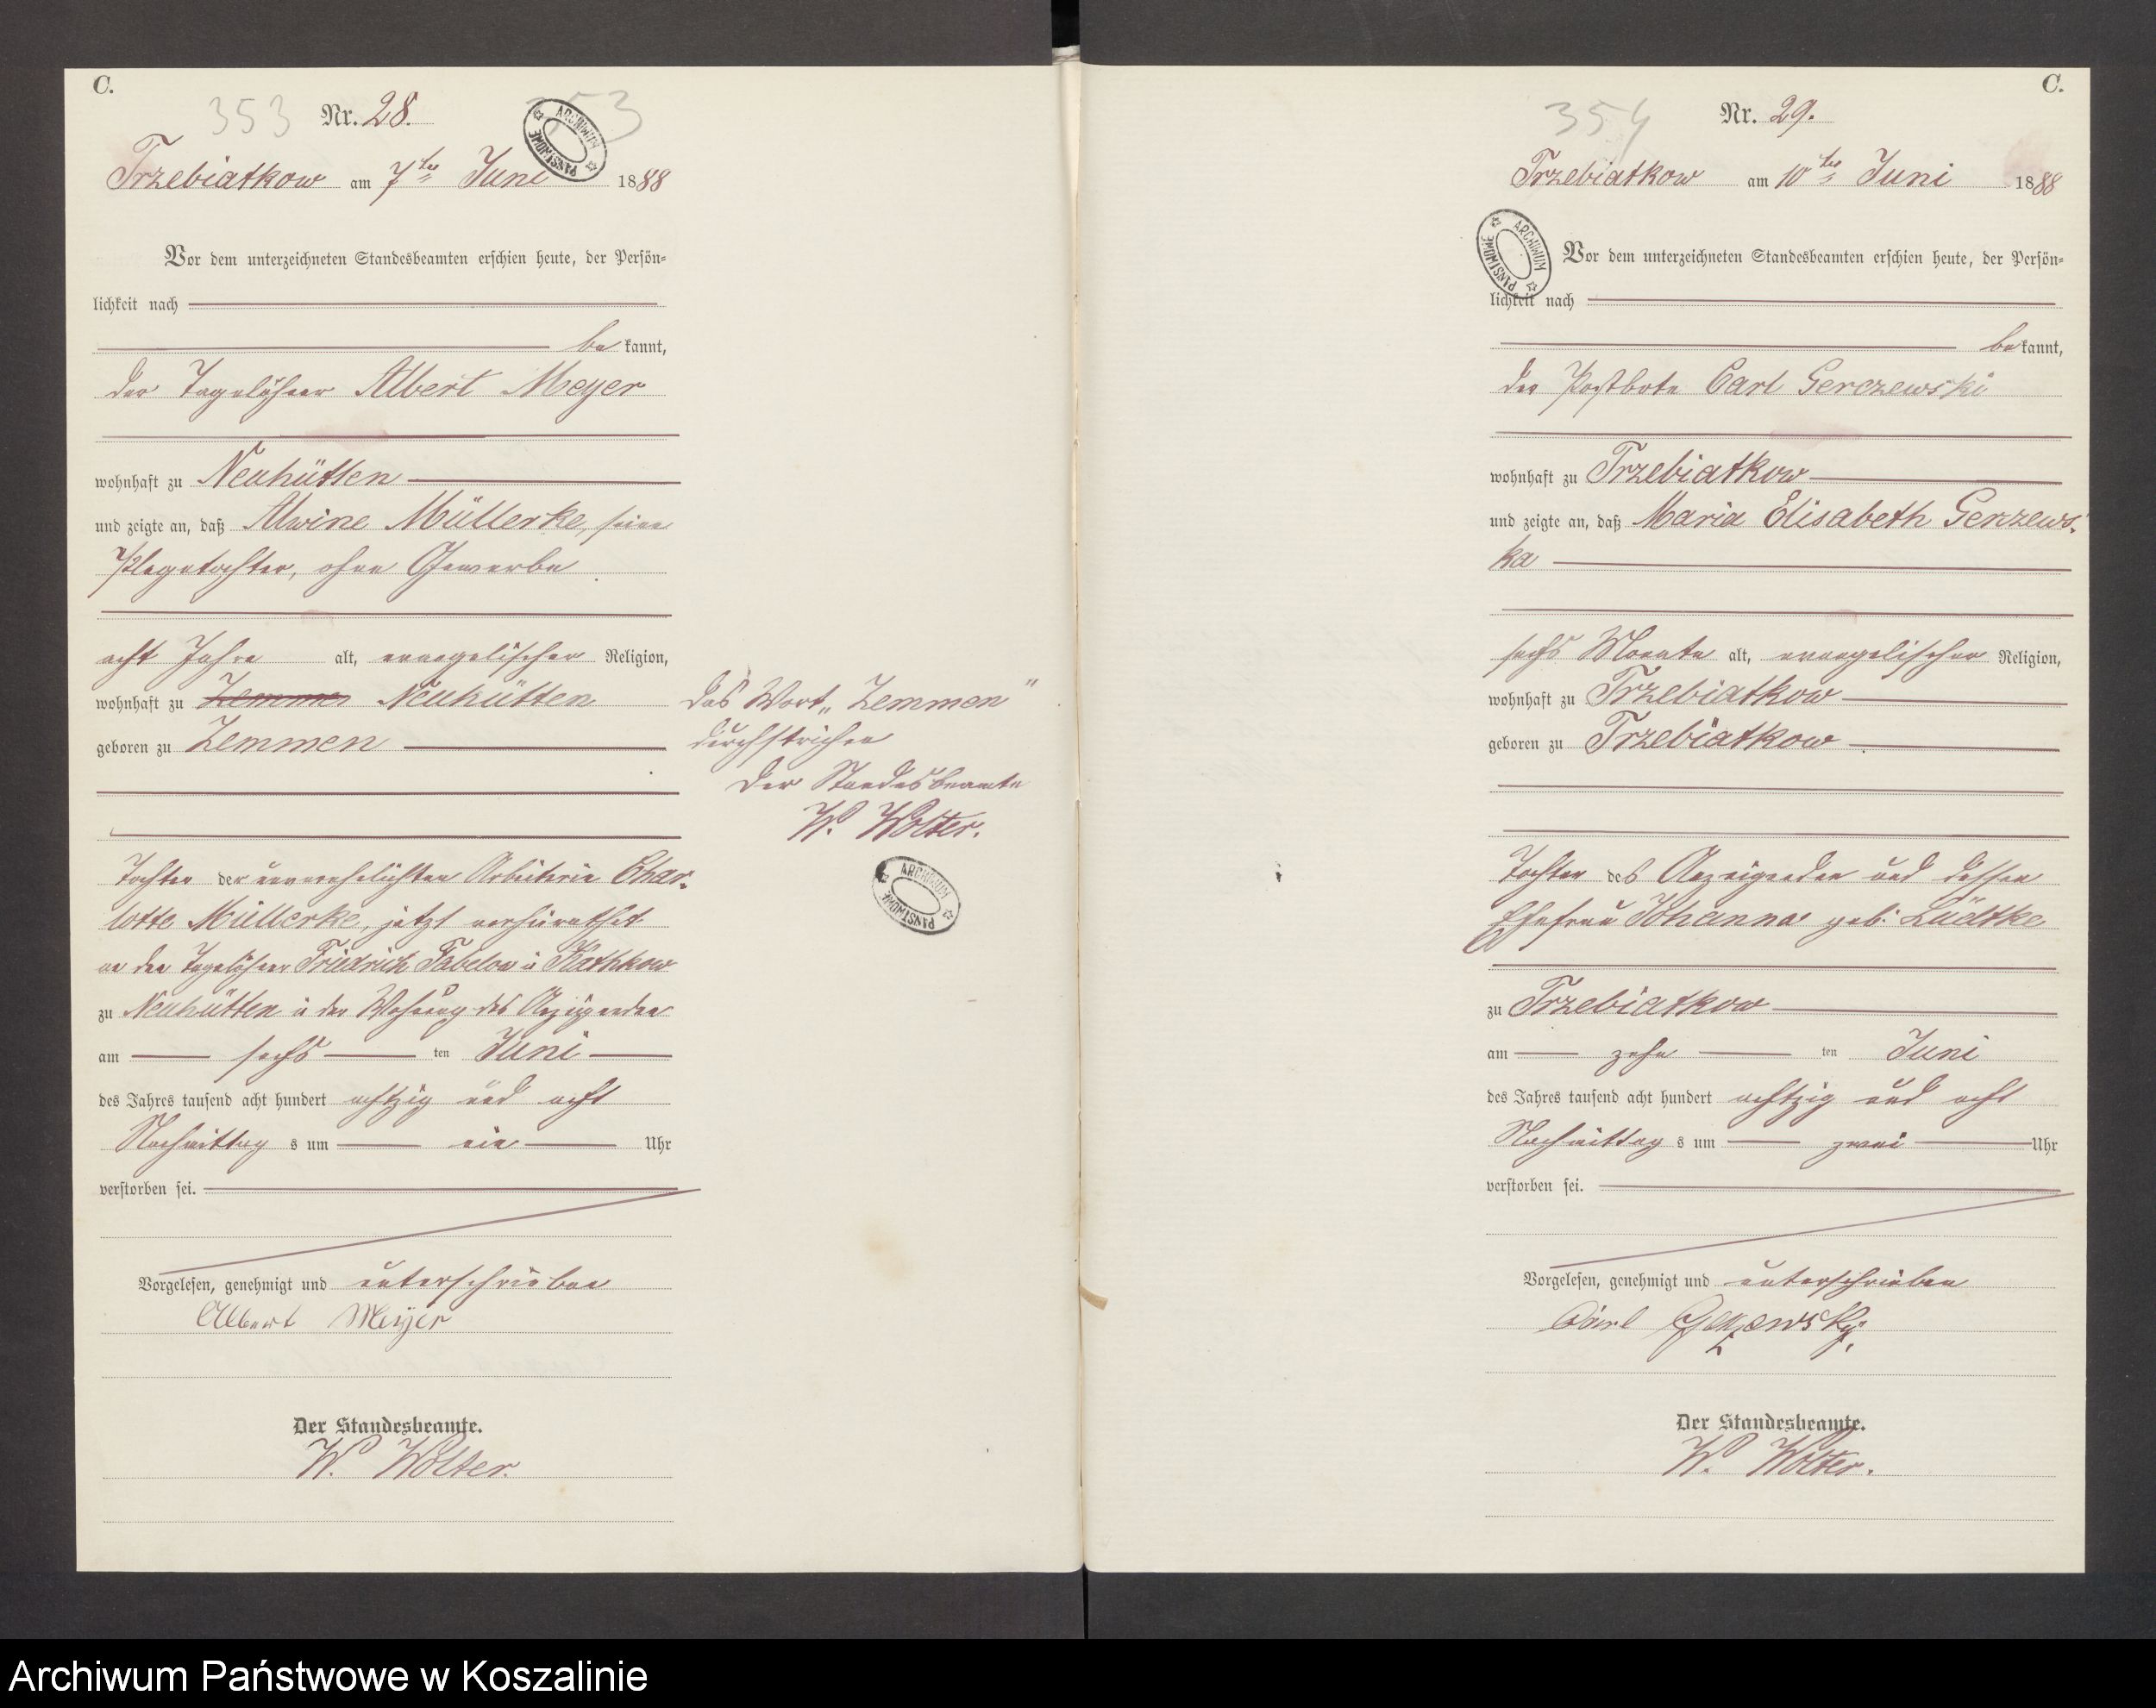 C.
353
Nr. 28.
353
ARCHIWUM PAŃSTWOWE
Trzebiatkow am 7ten Juni 1888
Vor dem unterzeichneten Standesbeamten erschien heute, der Persön-
lichkeit nach
be kannt,
der Tagelöhner Albert Meyer
wohnhaft zu Neuhütten
und zeigte an, daß Alwine Müllerke, seine
Pflegetochter, ohne Gewerbe
acht Jahre alt, evangelischer Religion,
wohnhaft zu Zemmen Neuhütten
geboren zu Zemmen
Tochter der unverehelichten Arbeiterin Char-
lotte Müllerke, jetzt verheirathet
an den Tagelöhner Friedrich in
zu Neuhütten in der Wohnung des Anzeigenden
am sechs ten Juni
des Jahres tausend acht hundert achtzig und acht
Nachmittag s um ein Uhr
verstorben sei.
Vorgelesen, genehmigt und unterschrieben
Albert Meyer
Der Standesbeamte.
W. Wolter.
Das Wort „Zemmen"
durchstrichen
Der Standesbeamte
W. Wolter.
ARCHIWUM PAŃSTWOWE
C.
354
Nr. 29.
Trzebiatkow am 10ten Juni 1888
ARCHIWUM PAŃSTWOWE
Vor dem unterzeichneten Standesbeamten erschien heute, der Persön-
lichkeit nach
be kannt,
der Postbote Carl Gerczewski
wohnhaft zu Trzebiatkow
und zeigte an, daß Maria Elisabeth Gerzews-
ka
sechs Monate alt, evangelischer Religion,
wohnhaft zu Trzebiatkow
geboren zu Trzebiatkow
Tochter des Anzeigenden und dessen
Ehefrau Johanna geb. Lüdtke
zu Trzebiatkow
am zehn ten Juni
des Jahres tausend acht hundert achtzig und acht
Nachmittag s um zwei Uhr
verstorben sei.
Vorgelesen, genehmigt und unterschrieben
Carl
Der Standesbeamte.
W. Wolter.
Archiwum Państwowe w Koszalinie